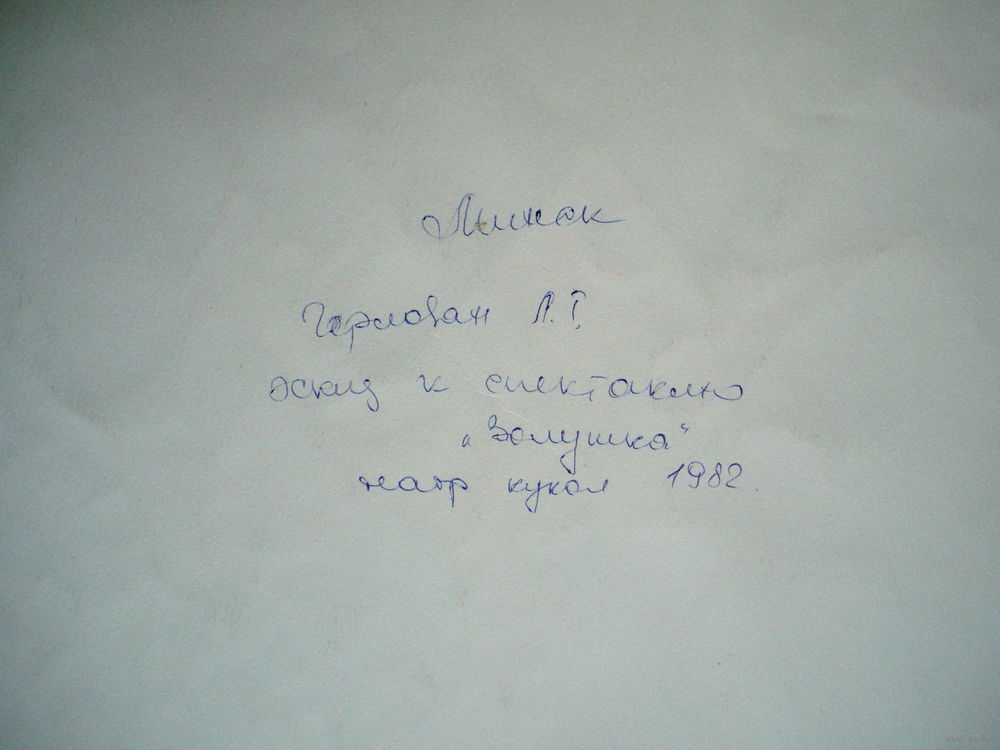 Герлован Л.Г.
эскиз к спектаклю
"Золушка"
театр кукол 1982.